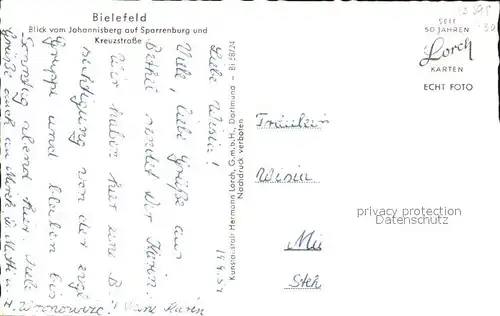 Bielefeld
Blick vom Johannisberg auf Sparrenburg und
Kreuzstraße
SEIT
50 JAHREN
Lorch
KARTEN
ECHT FOTO
Kunstanstalt Hermann Lorch, G.m.b.H., Dortmund – Bi 58/24
Nachdruck verboten
Liebe Wisia!
Viele, liebe Grüße aus
Bethel sendet Dir Karin.
Wir haben hier eine B
sichtigung von der evgl
Gruppe und bleiben bis
Sonntag abend hier. Viele
Grüße auch an
Karin
Fräulein
Wisia
privacy protection
Datenschutz